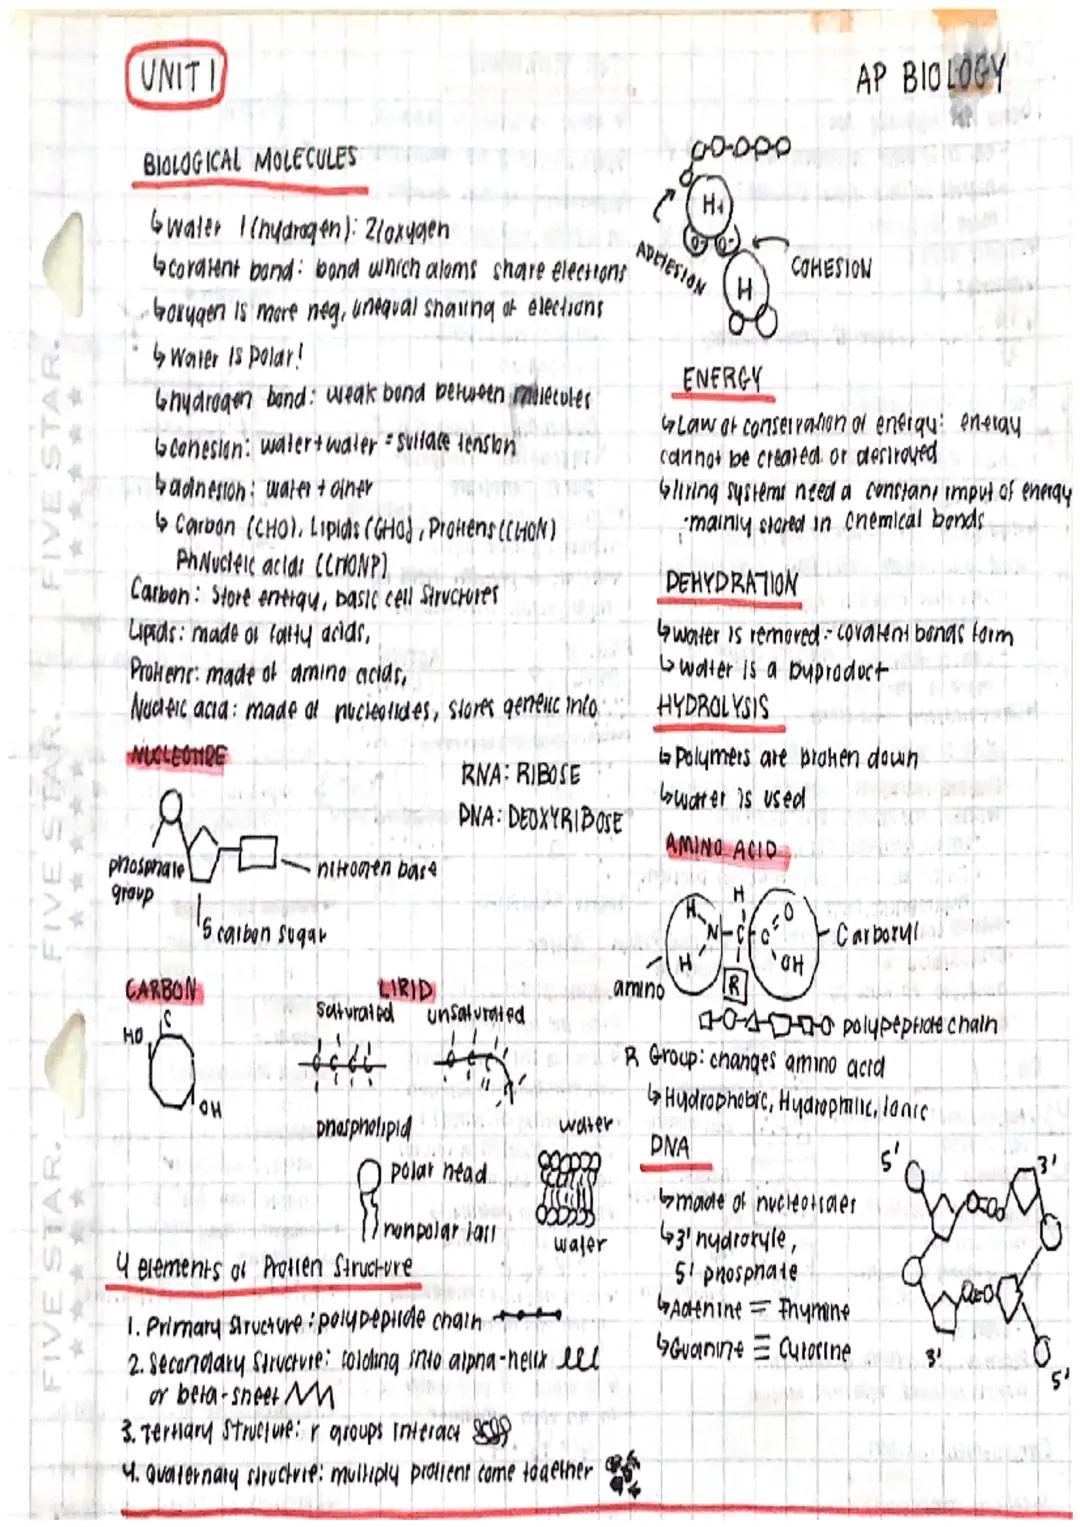 UNIT 1
AP BIOLOGY
BIOLOGICAL MOLECULES
↳ Water 1(hydrogen): 2(oxygen
↳ covalent bond: bond which atoms share electrons
↳ oxygen is more neg, unequal sharing of electrons
↳ Water is polar!
↳ hydrogen bond: weak bond between molecules
↳ cohesion: water + water = surface tension
↳ adhesion: water + other
↳ Carbon (CHO), Lipids (CHO), Protiens (CHON)
PhNucleic acids (CHONP)
Carbon: Store energy, basic cell structures
Lipids: made of fatty acids,
Protiens: made of amino acids,
Nucleic acid: made of nucleotides, stores genetic info
NUCLEOTIDE
RNA: RIBOSE
DNA: DEOXYRIBOSE
phosphate
group
nitrogen base
5 carbon sugar
CARBON
HO
C
OH
LIPID
saturated unsaturated
phospholipid
polar head
nonpolar tail
water
water
4 elements of Protien Structure
1. Primary Structure: polypeptide chain
2. Secondary Structure: folding into alpha-helix
or beta-sheet
3. Tertiary Structure: r groups interact
4. Quaternary structure: multiply protiens come together
H+
O-
O-
H
ADHESION
COHESION
ENERGY
↳ Law of conservation of energy: energy
cannot be created or destroyed
↳ living systems need a constant imput of energy
·mainly stored in chemical bonds
DEHYDRATION
↳ water is removed - covalent bonds form
↳ water is a byproduct
HYDROLYSIS
↳ Polymers are broken down
↳ water is used
AMINO ACID
H
H
N-C-C
O
H
OH
R
amino
Carboxyl
polypeptide chain
R Group: changes amino acid
↳ Hydrophobic, Hydrophilic, Ionic
DNA
↳ made of nucleotides
↳ 3' hydroxyle,
5' phosphate
↳ Adenine = Thymine
↳ Guanine ≡ Cytosine
5'
3'
3'
5'
FIVE STAR.
FIVE STAR.
FIVE STAR.
FIVE STAR.